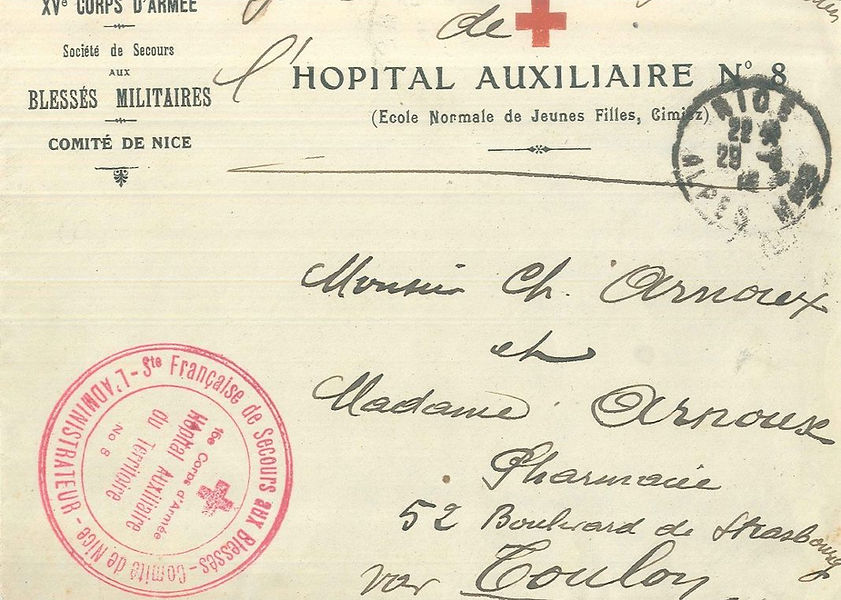 XVe CORPS D'ARMÉE
Société de Secours
AUX
BLESSÉS MILITAIRES
COMITÉ DE NICE
de
l'HOPITAL AUXILIAIRE No 8
(Ecole Normale de Jeunes Filles, Cimiez)
NICE
22
29
ALPES MMES
Monsieur Ch. Arnoux
et
Madame Arnoux
Pharmacie
52 Boulevard de Strasbourg
Var Toulon
L'ADMINISTRATEUR - Sté Française de Secours aux Blessés - Comité de Nice -
15e Corps d'Armée
Hôpital Auxiliaire
du Territoire
No 8